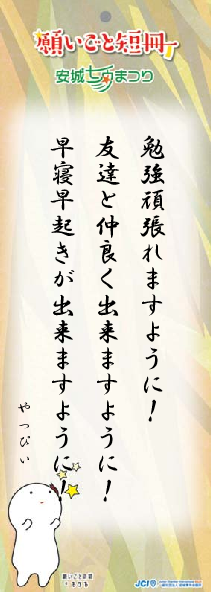 願いごと短冊
安城七夕まつり
勉強頑張れますように!
友達と仲良く出来ますように!
早寝早起きが出来ますように!
やっぴい
願いごと短冊
JCI